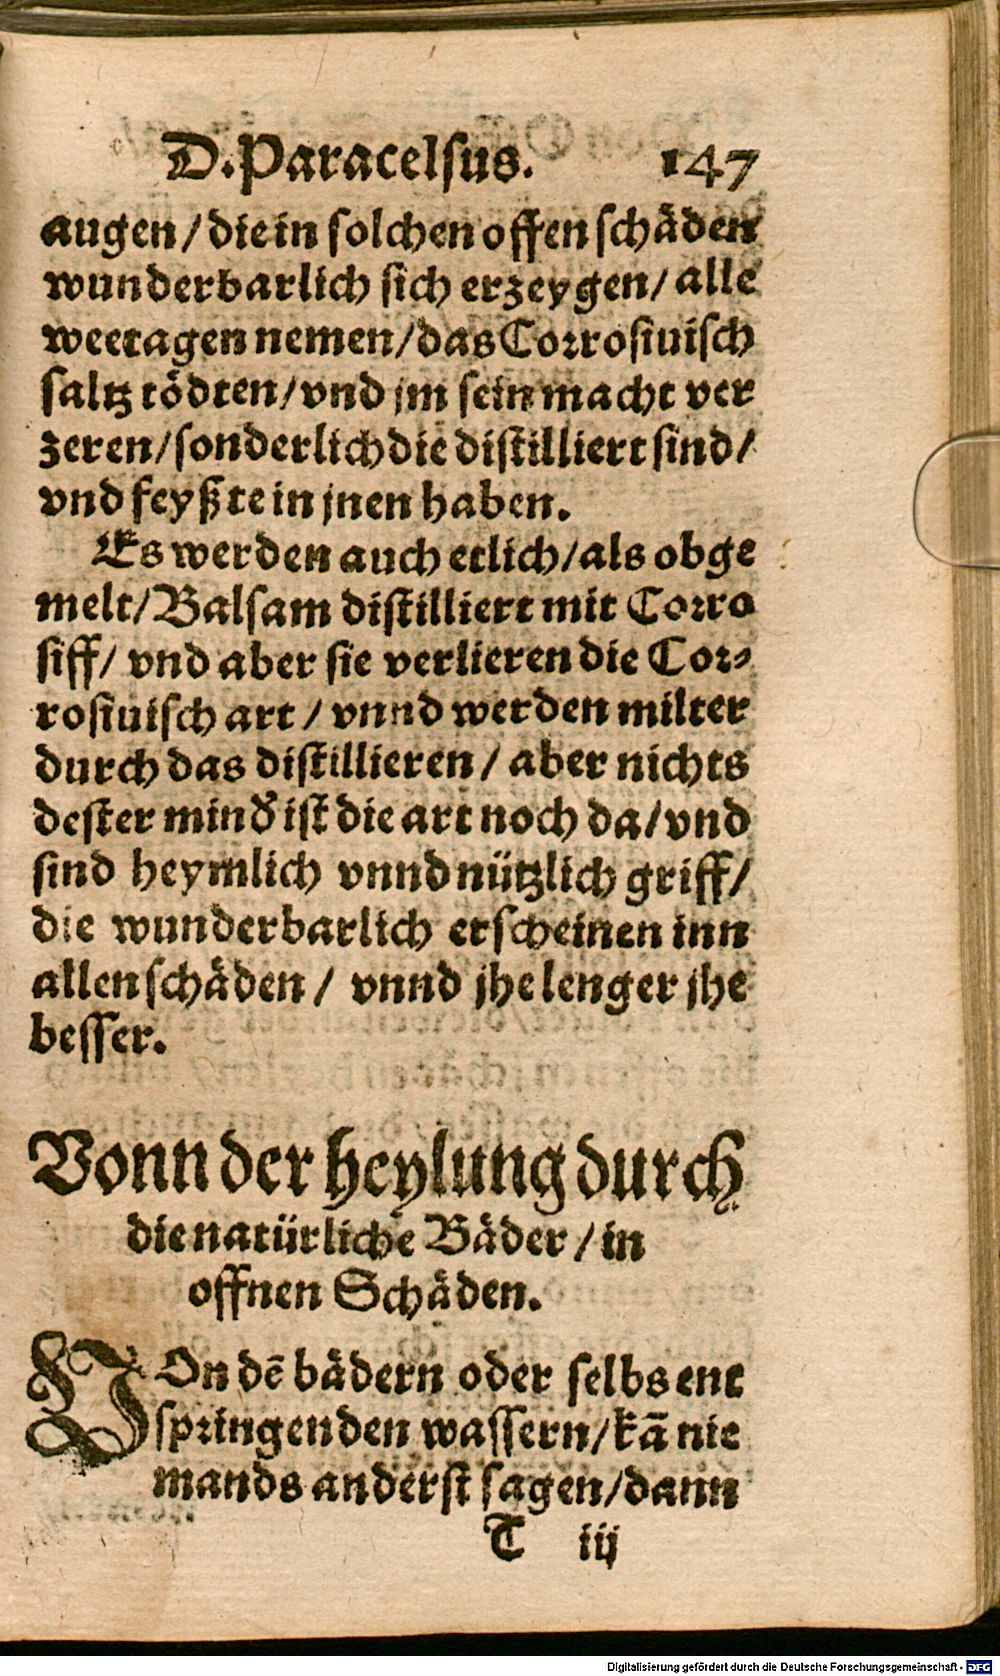 D. Paracelsus. 147
augen / die in solchen offen schäden
wunderbarlich sich erzeygen / alle
weetagen nemen / das Corrosiuisch
saltz tödten / vnd jm sein macht ver
zeren / sonderlich die distilliert sind /
vnd feyßte in jnen haben.
Es werden auch etlich / als obge
melt / Balsam distilliert mit Corro
siff / vnd aber sie verlieren die Cor⸗
rosiuisch art / vnnd werden milter
durch das distillieren / aber nichts
dester mind̕ ist die art noch da / vnd
sind heymlich vnnd nützlich griff /
die wunderbarlich erscheinen inn
allen schäden / vnnd jhe lenger jhe
besser.
Vonn der heylung durch
die natürliche Bäder / in
offnen Schäden.
VOn dē bädern oder selbs ent
springenden wassern / kā nie
mands anderst sagen / dann
T iij
Digitalisierung gefördert durch die Deutsche Forschungsgemeinschaft - DFG